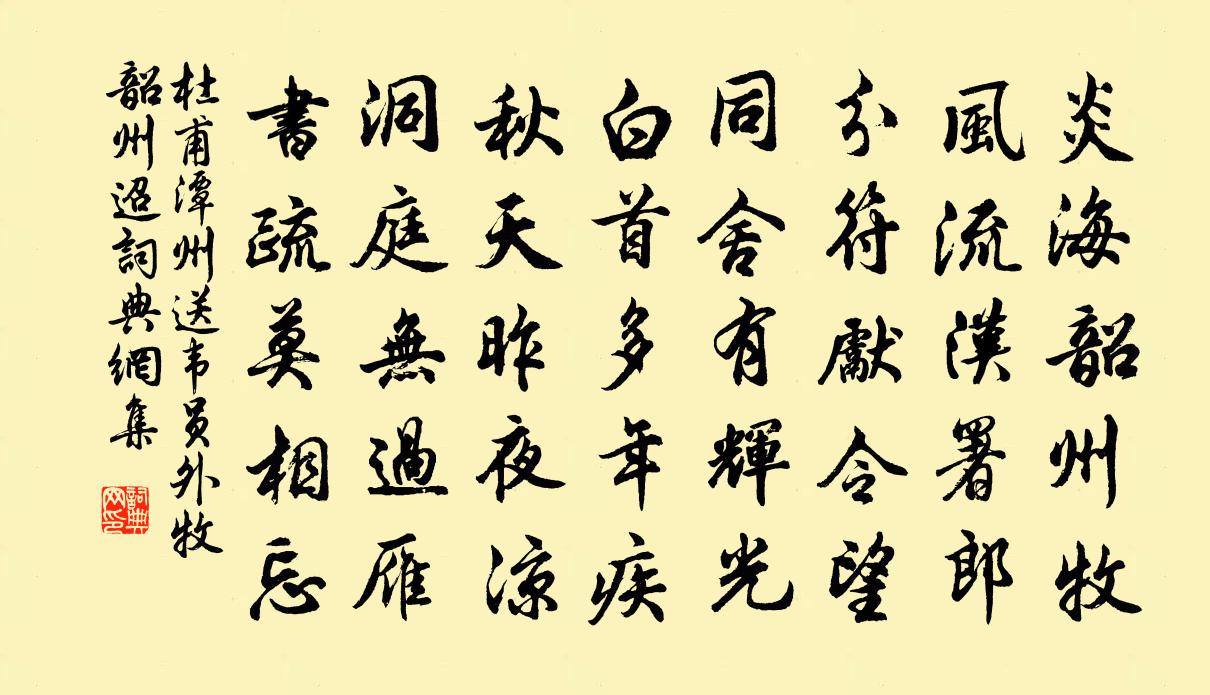 炎海韶州牧
風流漢署郎
分符獻令望
同舍有輝光
白首多年疾
秋天昨夜涼
洞庭無過雁
書疏莫相忘
杜甫潭州送韦员外牧
韶州迢詞典網集
詞典网印